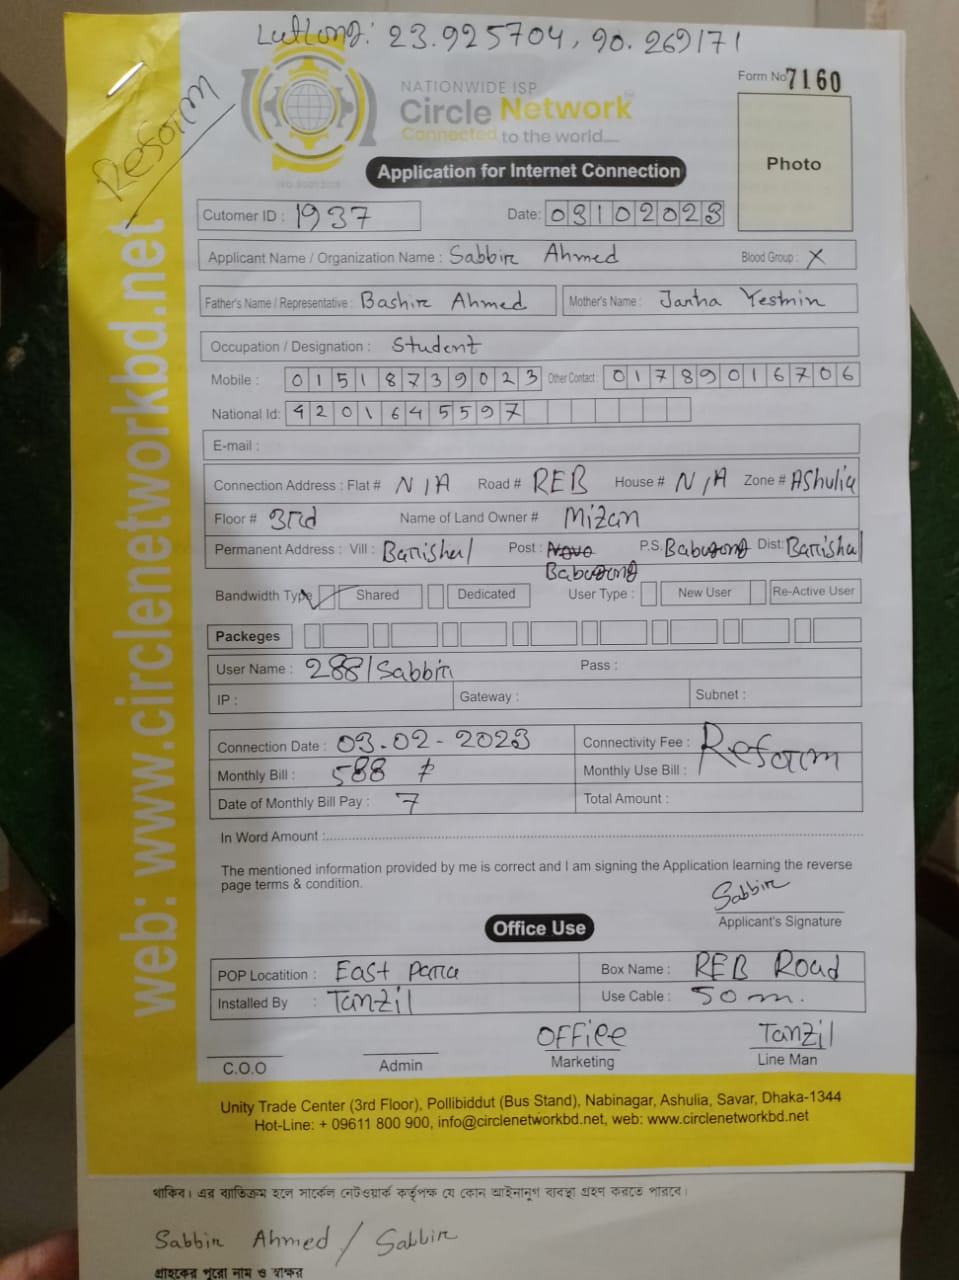 LatLong: 23.925704, 90.269171
Reform
NATIONWIDE ISP
Circle Network
Connected to the world....
Form No 7160
Photo
Application for Internet Connection
Cutomer ID : 1937
Date: 03102023
Applicant Name / Organization Name : Sabbir Ahmed Blood Group : X
Father's Name / Representative : Bashir Ahmed Mother's Name : Jantha Yesmin
Occupation / Designation : Student
Mobile : 01518739023 Other Contact : 01789016706
National Id: 4201645597
E-mail :
Connection Address : Flat # N/A Road # REB House # N/A Zone # AShulia
Floor # 3rd Name of Land Owner # Mizan
Permanent Address : Vill : Barrishal Post : Babugong P.S. Babugong Dist: Barrishal
Bandwidth Type Shared Dedicated User Type : New User Re-Active User
Packeges
User Name : 288/Sabbir Pass :
IP : Gateway : Subnet :
Connection Date : 03-02-2023 Connectivity Fee : Reform
Monthly Bill : 588 Monthly Use Bill :
Date of Monthly Bill Pay : 7 Total Amount :
In Word Amount :
The mentioned information provided by me is correct and I am signing the Application learning the reverse
page terms & condition.
Sabbir
Applicant's Signature
Office Use
POP Locatition : East Para Box Name : REB Road
Installed By : Tanzil Use Cable : 50 m.
OFFice Tanzil
C.O.O Admin Marketing Line Man
Unity Trade Center (3rd Floor), Pollibiddut (Bus Stand), Nabinagar, Ashulia, Savar, Dhaka-1344
Hot-Line: + 09611 800 900, info@circlenetworkbd.net, web: www.circlenetworkbd.net
web: www.circlenetworkbd.net
থাকিব। এর ব্যতিক্রম হলে সার্কেল নেটওয়ার্ক কর্তৃপক্ষ যে কোন আইনানুগ ব্যবস্থা গ্রহণ করতে পারবে।
Sabbir Ahmed / Sabbir
গ্রাহকের পুরো নাম ও স্বাক্ষর